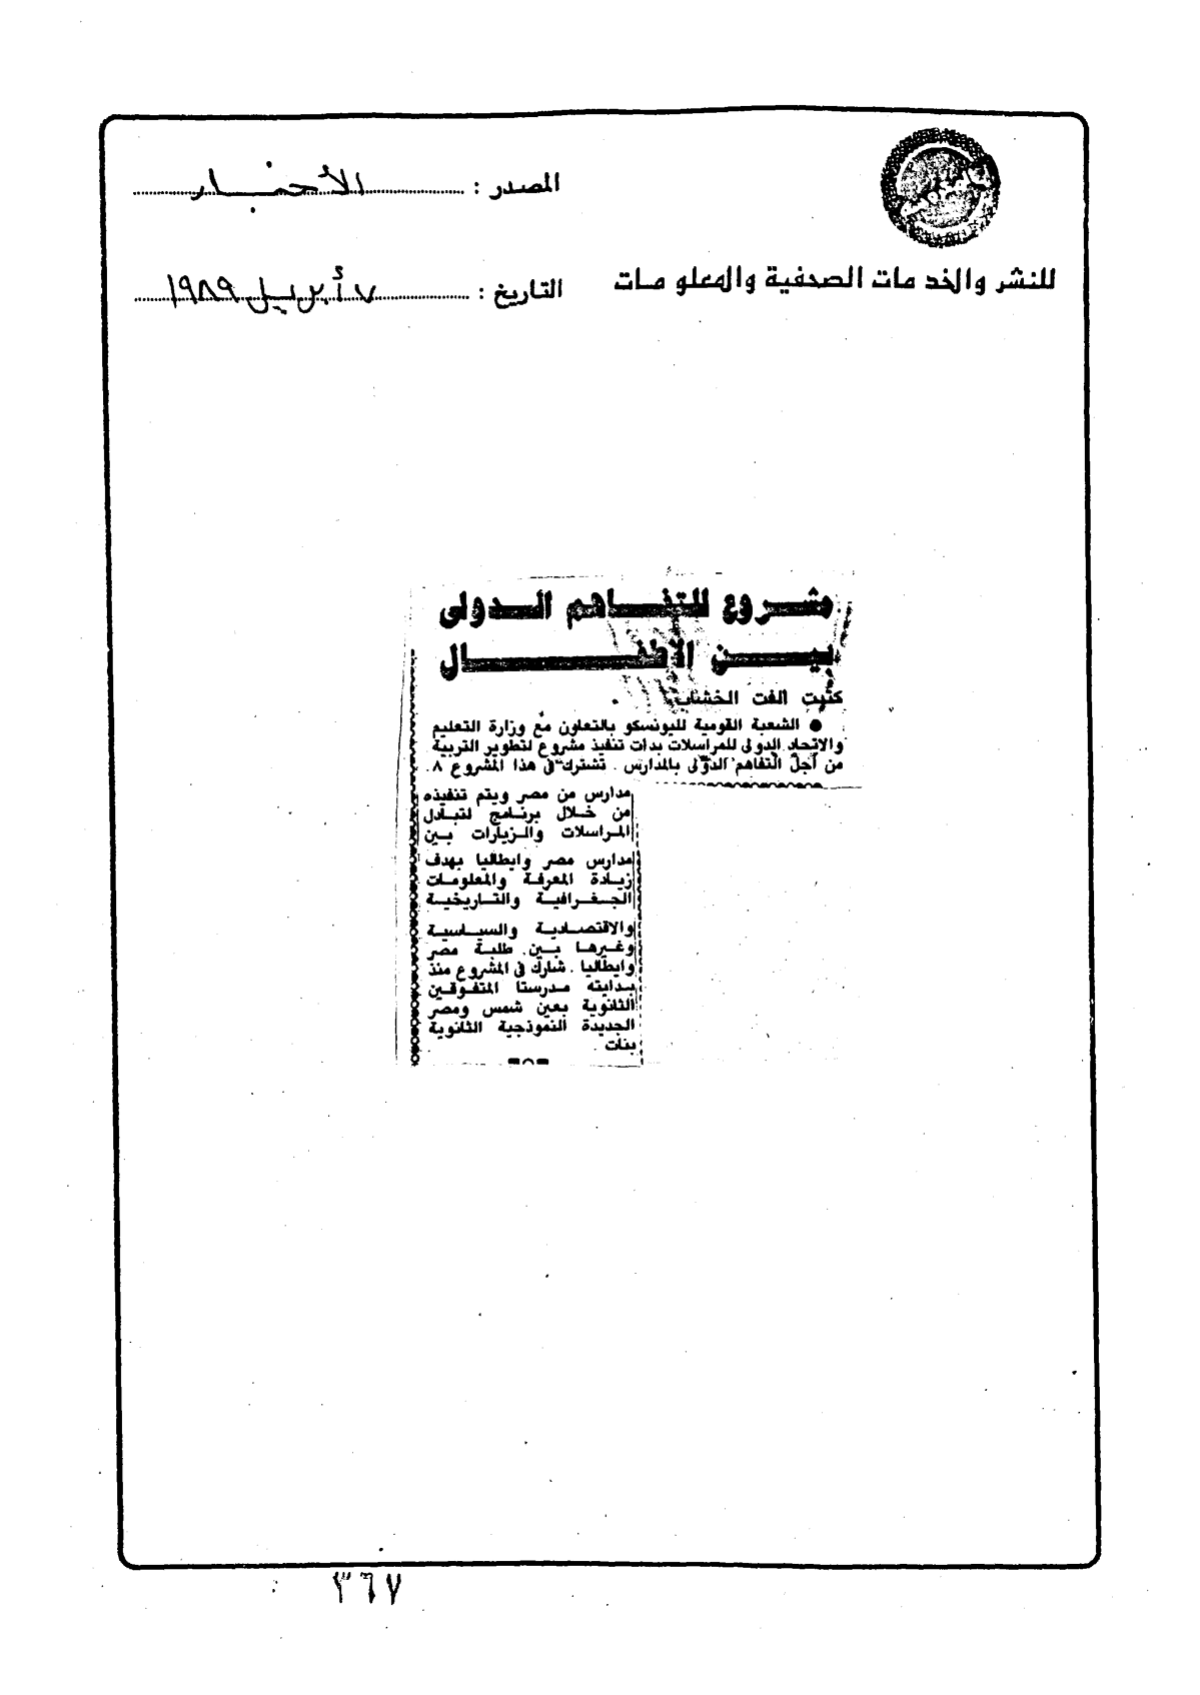 المصدر : الأخبار
للنشر والخدمات الصحفية والمعلومات
التاريخ : ٧ أبريل ١٩٨٩
مشروع للتفاهم الدولى
بين الأطفال
كتبت الفت الخشاب
● الشعبة القومية لليونسكو بالتعاون مع وزارة التعليم
والاتحاد الدولى للمراسلات بدات تنفيذ مشروع لتطوير التربية
من أجل التفاهم الدولى بالمدارس . تشترك فى هذا المشروع ٨
مدارس من مصر ويتم تنفيذه
من خلال برنامج لتبادل
المراسلات والزيارات بين
مدارس مصر وايطاليا بهدف
زيادة المعرفة والمعلومات
الجغرافية والتاريخية
والاقتصادية والسياسية
وغيرها بين طلبة مصر
وايطاليا . شارك فى المشروع منذ
بدايته مدرستا المتفوقين
الثانوية بعين شمس ومصر
الجديدة النموذجية الثانوية
بنات .
٣٦٧